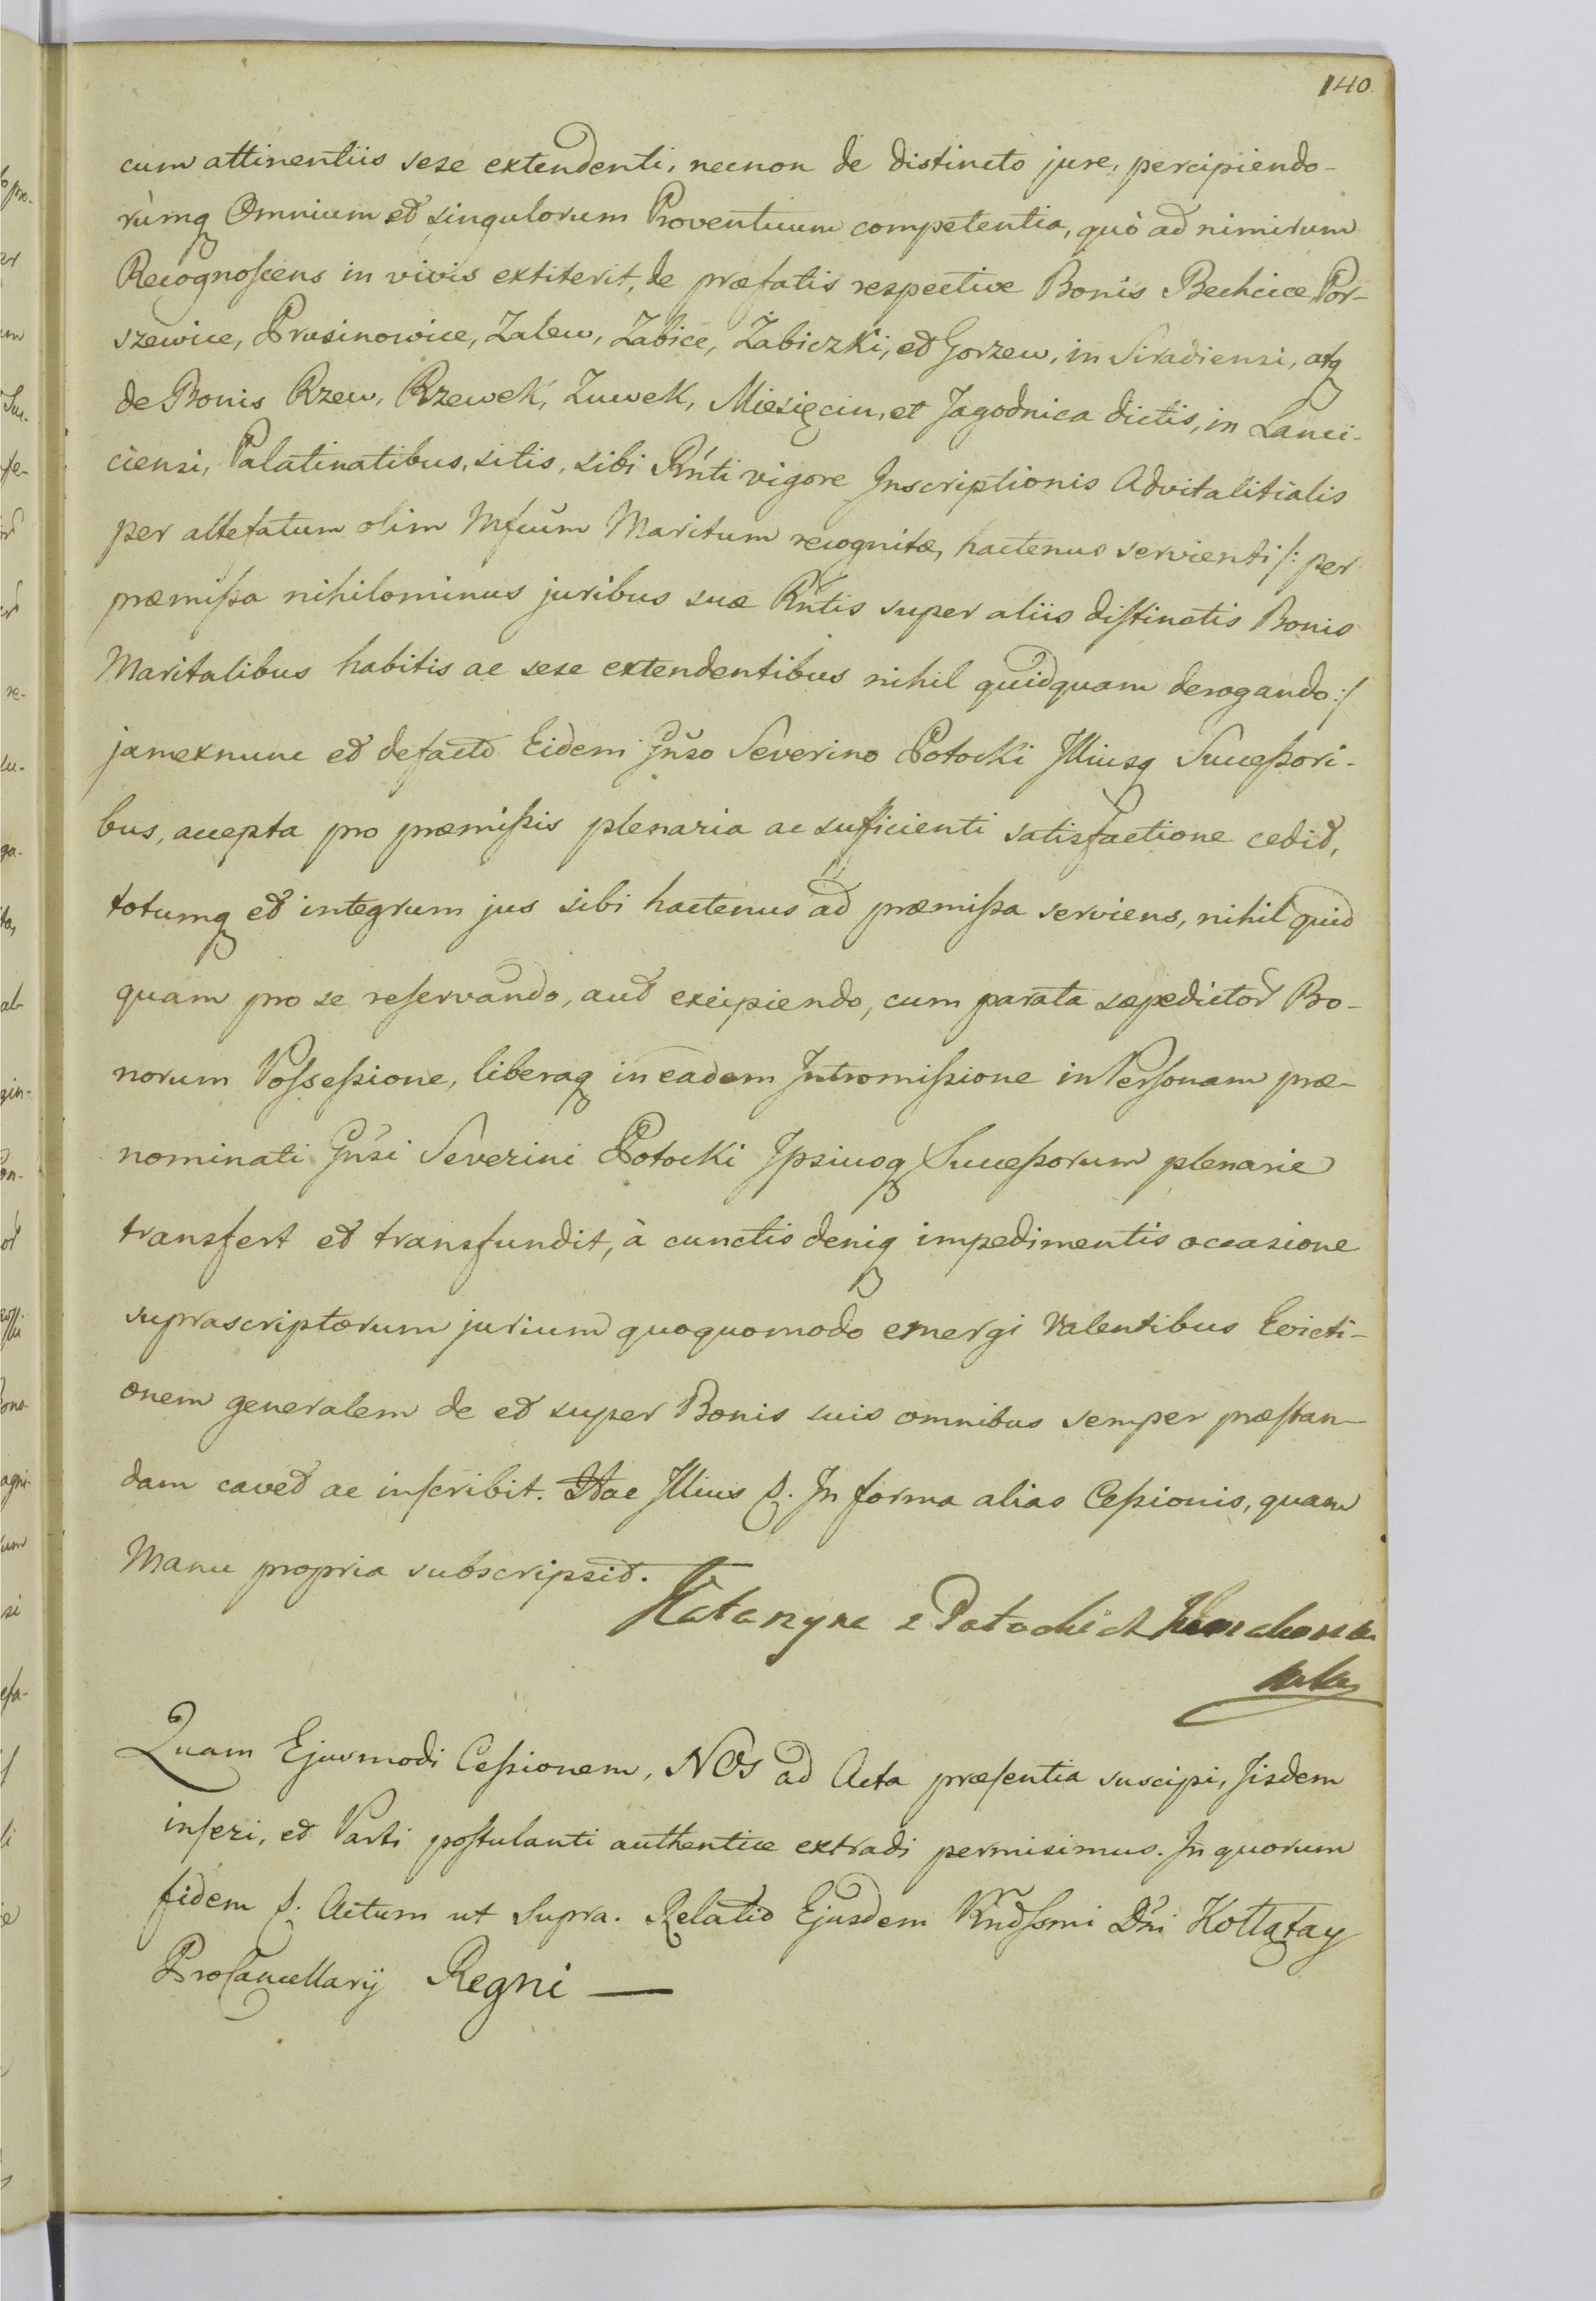 140.
cum attinentiis sese extendenti, necnon de distincto jure, percipiendo-
rùmq Omnium et singulorum Proventuum competentia, quò ad nimirum
Recognoscens in vivis extiterit, de præfatis respective Bonis Bechcice, Por-
szewice, Prusinowice, Zalew, Zabice, Żabiczki, et Gorzew, in Siradiensi, atq
de Bonis Rzew, Rzewek, Zuwek, Miesięcin, et Jagodnica dictis, in Lanci-
ciensi, Palatinatibus, sitis, sibi Rńti vigore Inscriptionis Advitalitialis
per attefatum olim Mfcum Maritum recognitæ, hactenus servienti /: per
præmissa nihilominus juribus suæ Rńtis super aliis distinctis Bonis
Maritalibus habitis ac sese extendentibus nihil quidquam derogando :/
jamexnunc et defacto Eidem Gńso Severino Potocki Illiusq Successori-
bus, accepta pro præmissis plenaria ac suficienti satisfactione cedit,
totumq et integrum jus sibi hactenus ad præmissa serviens, nihil quid
quam pro se reservando, aut excipiendo, cum parata sæpedictor Bo-
norum Possessione, liberaq in eadem Intromissione in Personam præ-
nominati Gńsi Severini Potocki Ipsiusq Successorum plenarie
transfert et transfundit, à cunctis deniq impedimentis occasione
suprascriptorum jurium quoquomodo emergi valentibus Evicti-
onem generalem de et super Bonis suis omnibus semper præstan-
dam cavet ac inscribit. Hac Illius In forma alias Cessionis, quam
Manu propria subscripsit.
Katarzyna z Potockich
Quam Ejusmodi Cessionem, NOs ad Acta præsentia suscipi, Iisdem
inseri, et Parti postulanti authentice extradi permisimus. In quorum
fidem Actum ut Supra. Relatio Ejusdem Rńdssmi Dńi Kołłątay
ProCancellarij Regni —